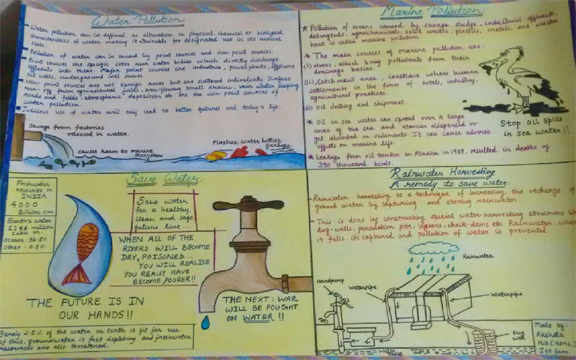 Water Pollution
Water pollution can be defined as alteration in physical, chemical or biological
characteristics of water making it unsuitable for designated use in its natural
state
Pollution of water can be caused by point sources and non point sources.
Point sources are specific sites near water bodies which directly discharge
effluents into them. Major point sources are industries, power plants,
oil wells, underground coal mines
Non point sources are not specific areas but are scattered individually. Surface
run-offs from agricultural fields, over-flowing small drains, rain water sweeping
roads and fields, atmospheric deposition etc. are the non-point sources of
water pollution.
Judicious use of water will only lead to better futures and today's life.
Sewage from factories
released in water
causes harm to marine
ecosystem
Plastics, water bottles,
garbage
Marine Pollution
Pollution of oceans caused by sewage sludge, industrial effluents,
detergents, agrochemicals, solid wastes, plastics, metals and waste
heat is called marine pollution.
The main sources of marine pollution are:
i) rivers, which bring pollutants from their
drainage basins
ii) Catchment area: coastline where human
settlements in the form of hotels, industry,
agricultural practices.
iii) Oil drilling and shipment.
Oil in sea water can spread over a large
area of the sea and remains dispersed or
get absorbed in sediments. It can cause adverse
effects on marine life
Leakage from oil tanker in Alaska in 1989, resulted in deaths of
390 thousand birds.
Stop oil spills
in sea water!!
Save Water
Freshwater
resources in
INDIA
4000
Billion c.m
Earth's water
1386 million
cubic m.
Oceans: 96.5%
Save water
for a healthy,
clean and safe
future line.
WHEN ALL OF THE
RIVERS WILL BECOME
DRY, POISONED...
YOU WILL REALISE
YOU REALLY HAVE
BECOME POORER!!
THE FUTURE IS IN
OUR HANDS!!
THE NEXT WAR
WILL BE FOUGHT
ON WATER!!
Barely 2.5% of the water on earth is fit for use.
Of this, groundwater is fast depleting and freshwater
resources are also threatened.
Rainwater Harvesting
A remedy to save water
Rainwater harvesting is a technique of increasing the recharge of
ground water by capturing and storing rainwater.
This is done by constructing special water-harvesting structures like
dug-wells, percolation pits, lagoons, check-dams etc. Rainwater, where
it falls, is captured and pollution of water is prevented
Rainwater
Handpump
Waterpipe
Waterpipe
Dug
well
Made by:
Akshata